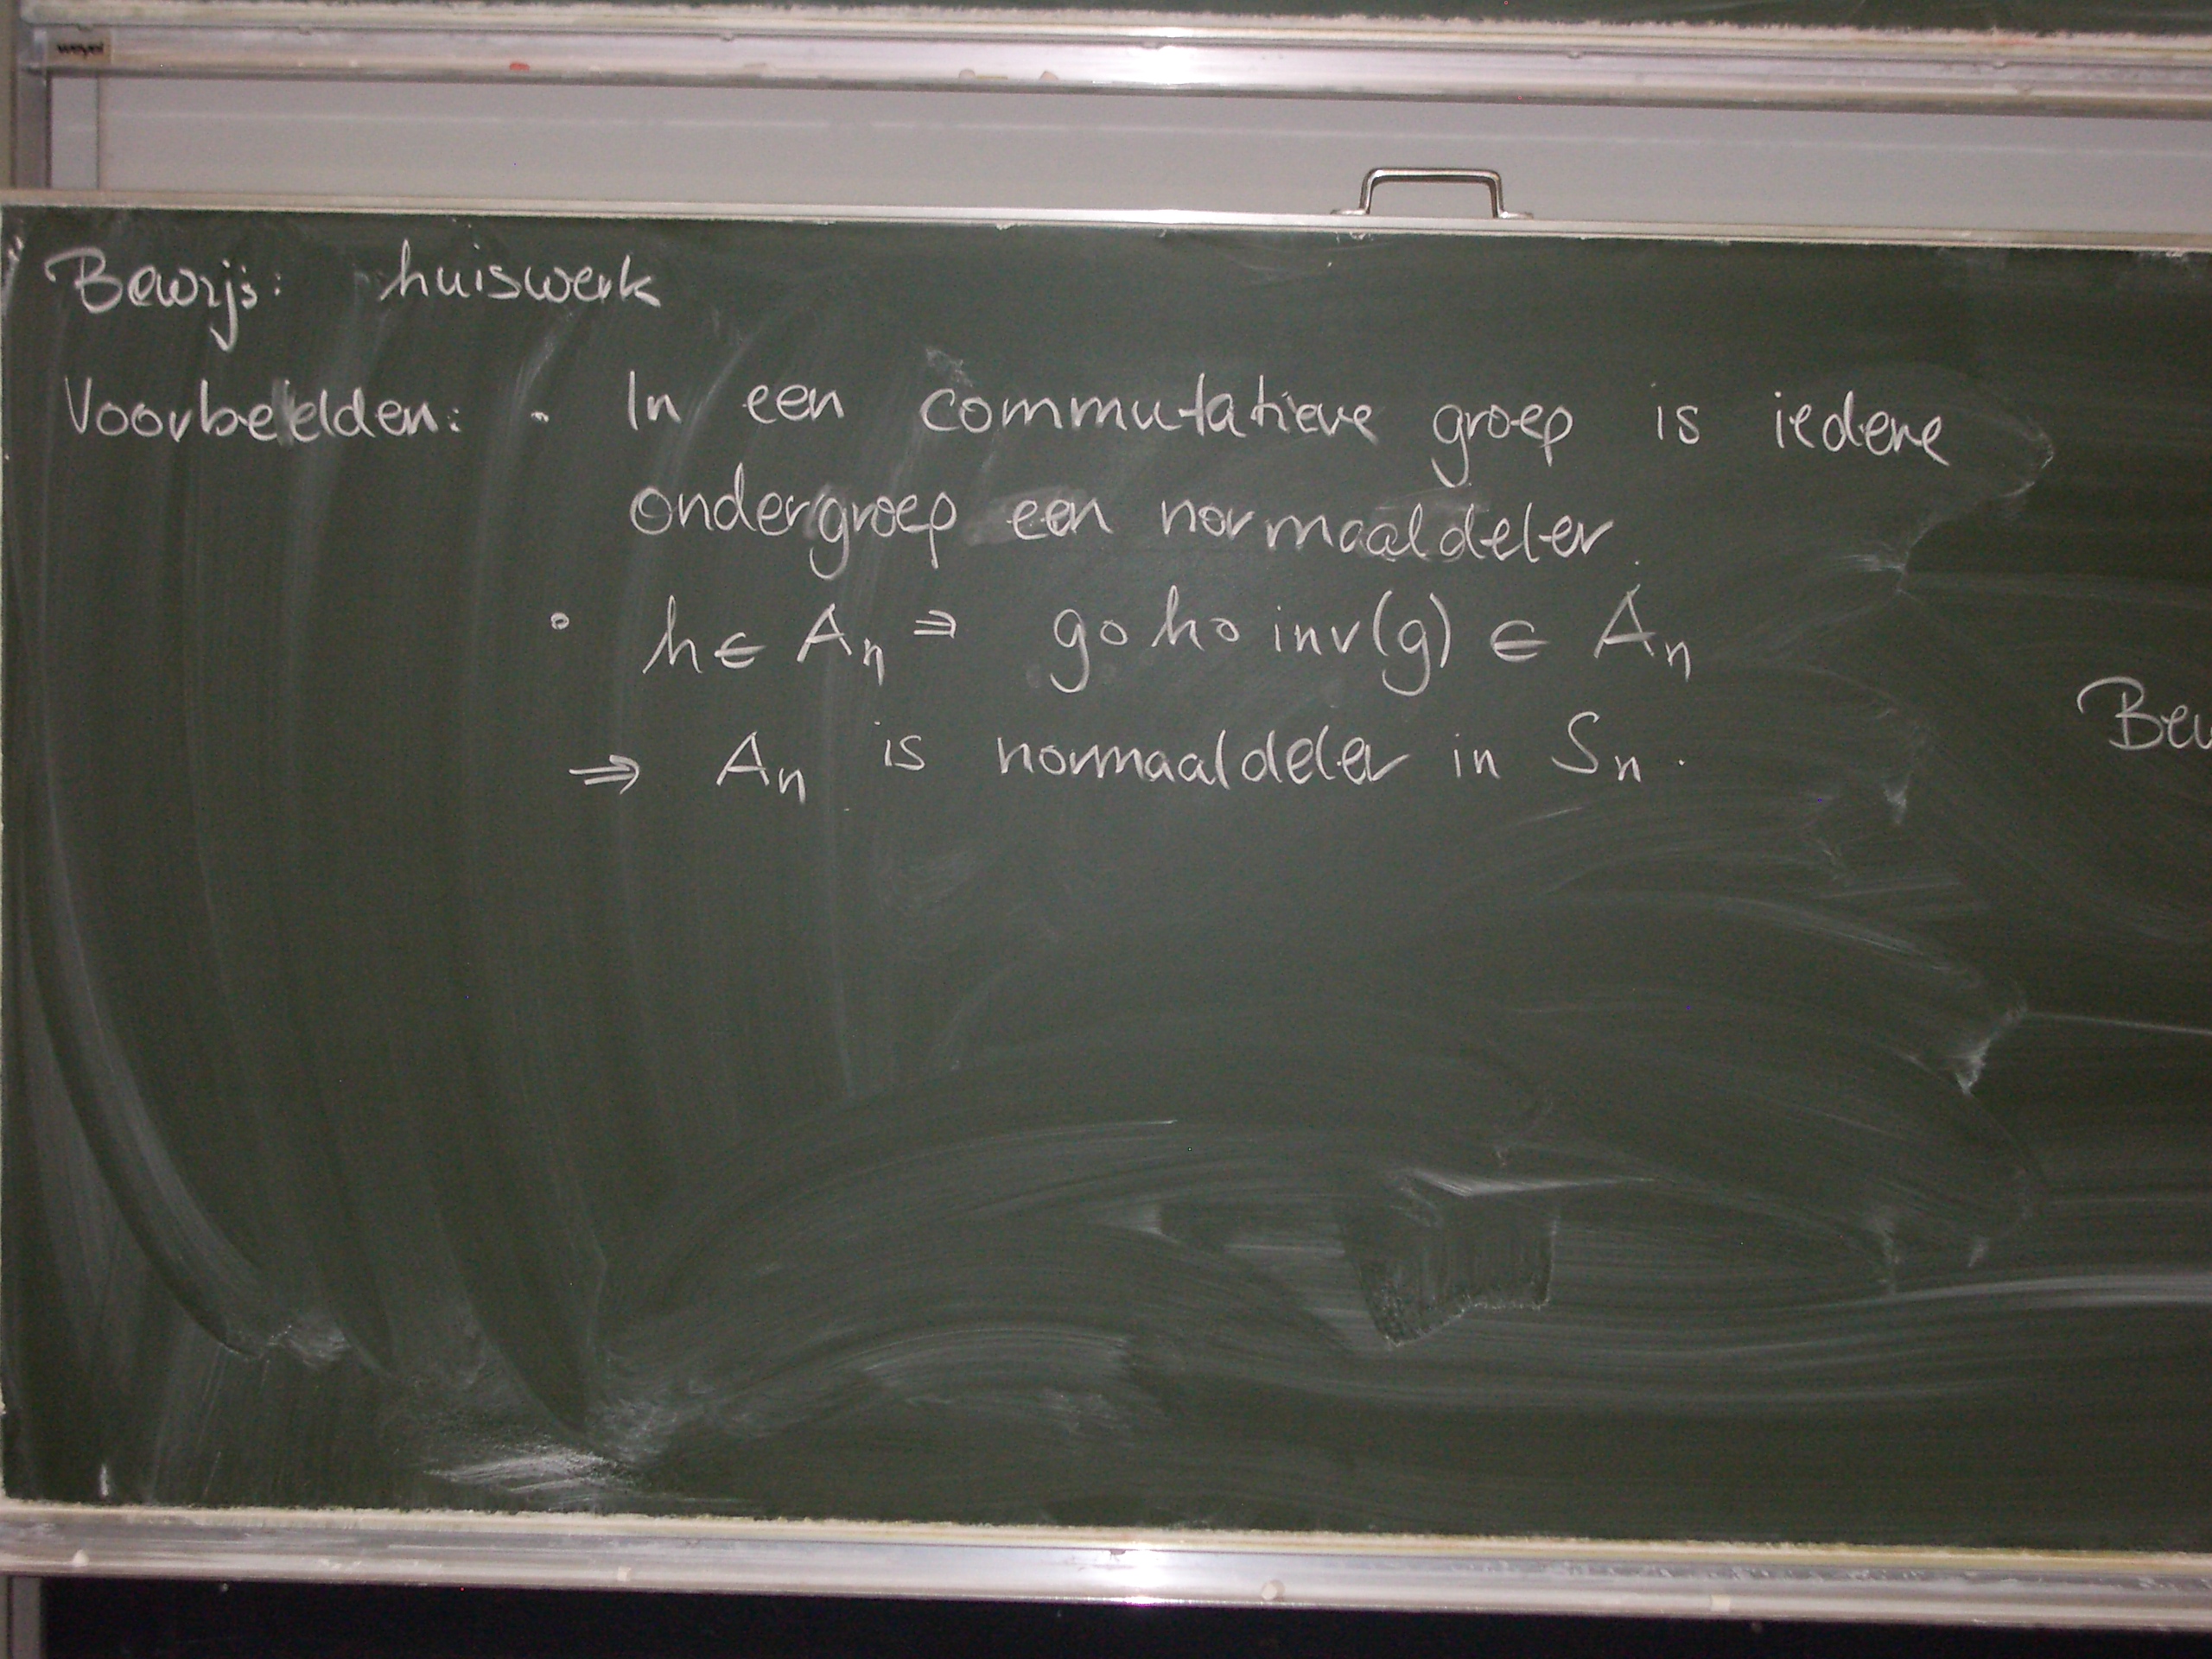 weyel
Bewijs: huiswerk
Voorbeelden: · In een commutatieve groep is iedere
ondergroep een normaaldeler.
· h ∈ Aₙ ⇒ g∘h∘inv(g) ∈ Aₙ
Bew
⇒ Aₙ is normaaldeler in Sₙ.